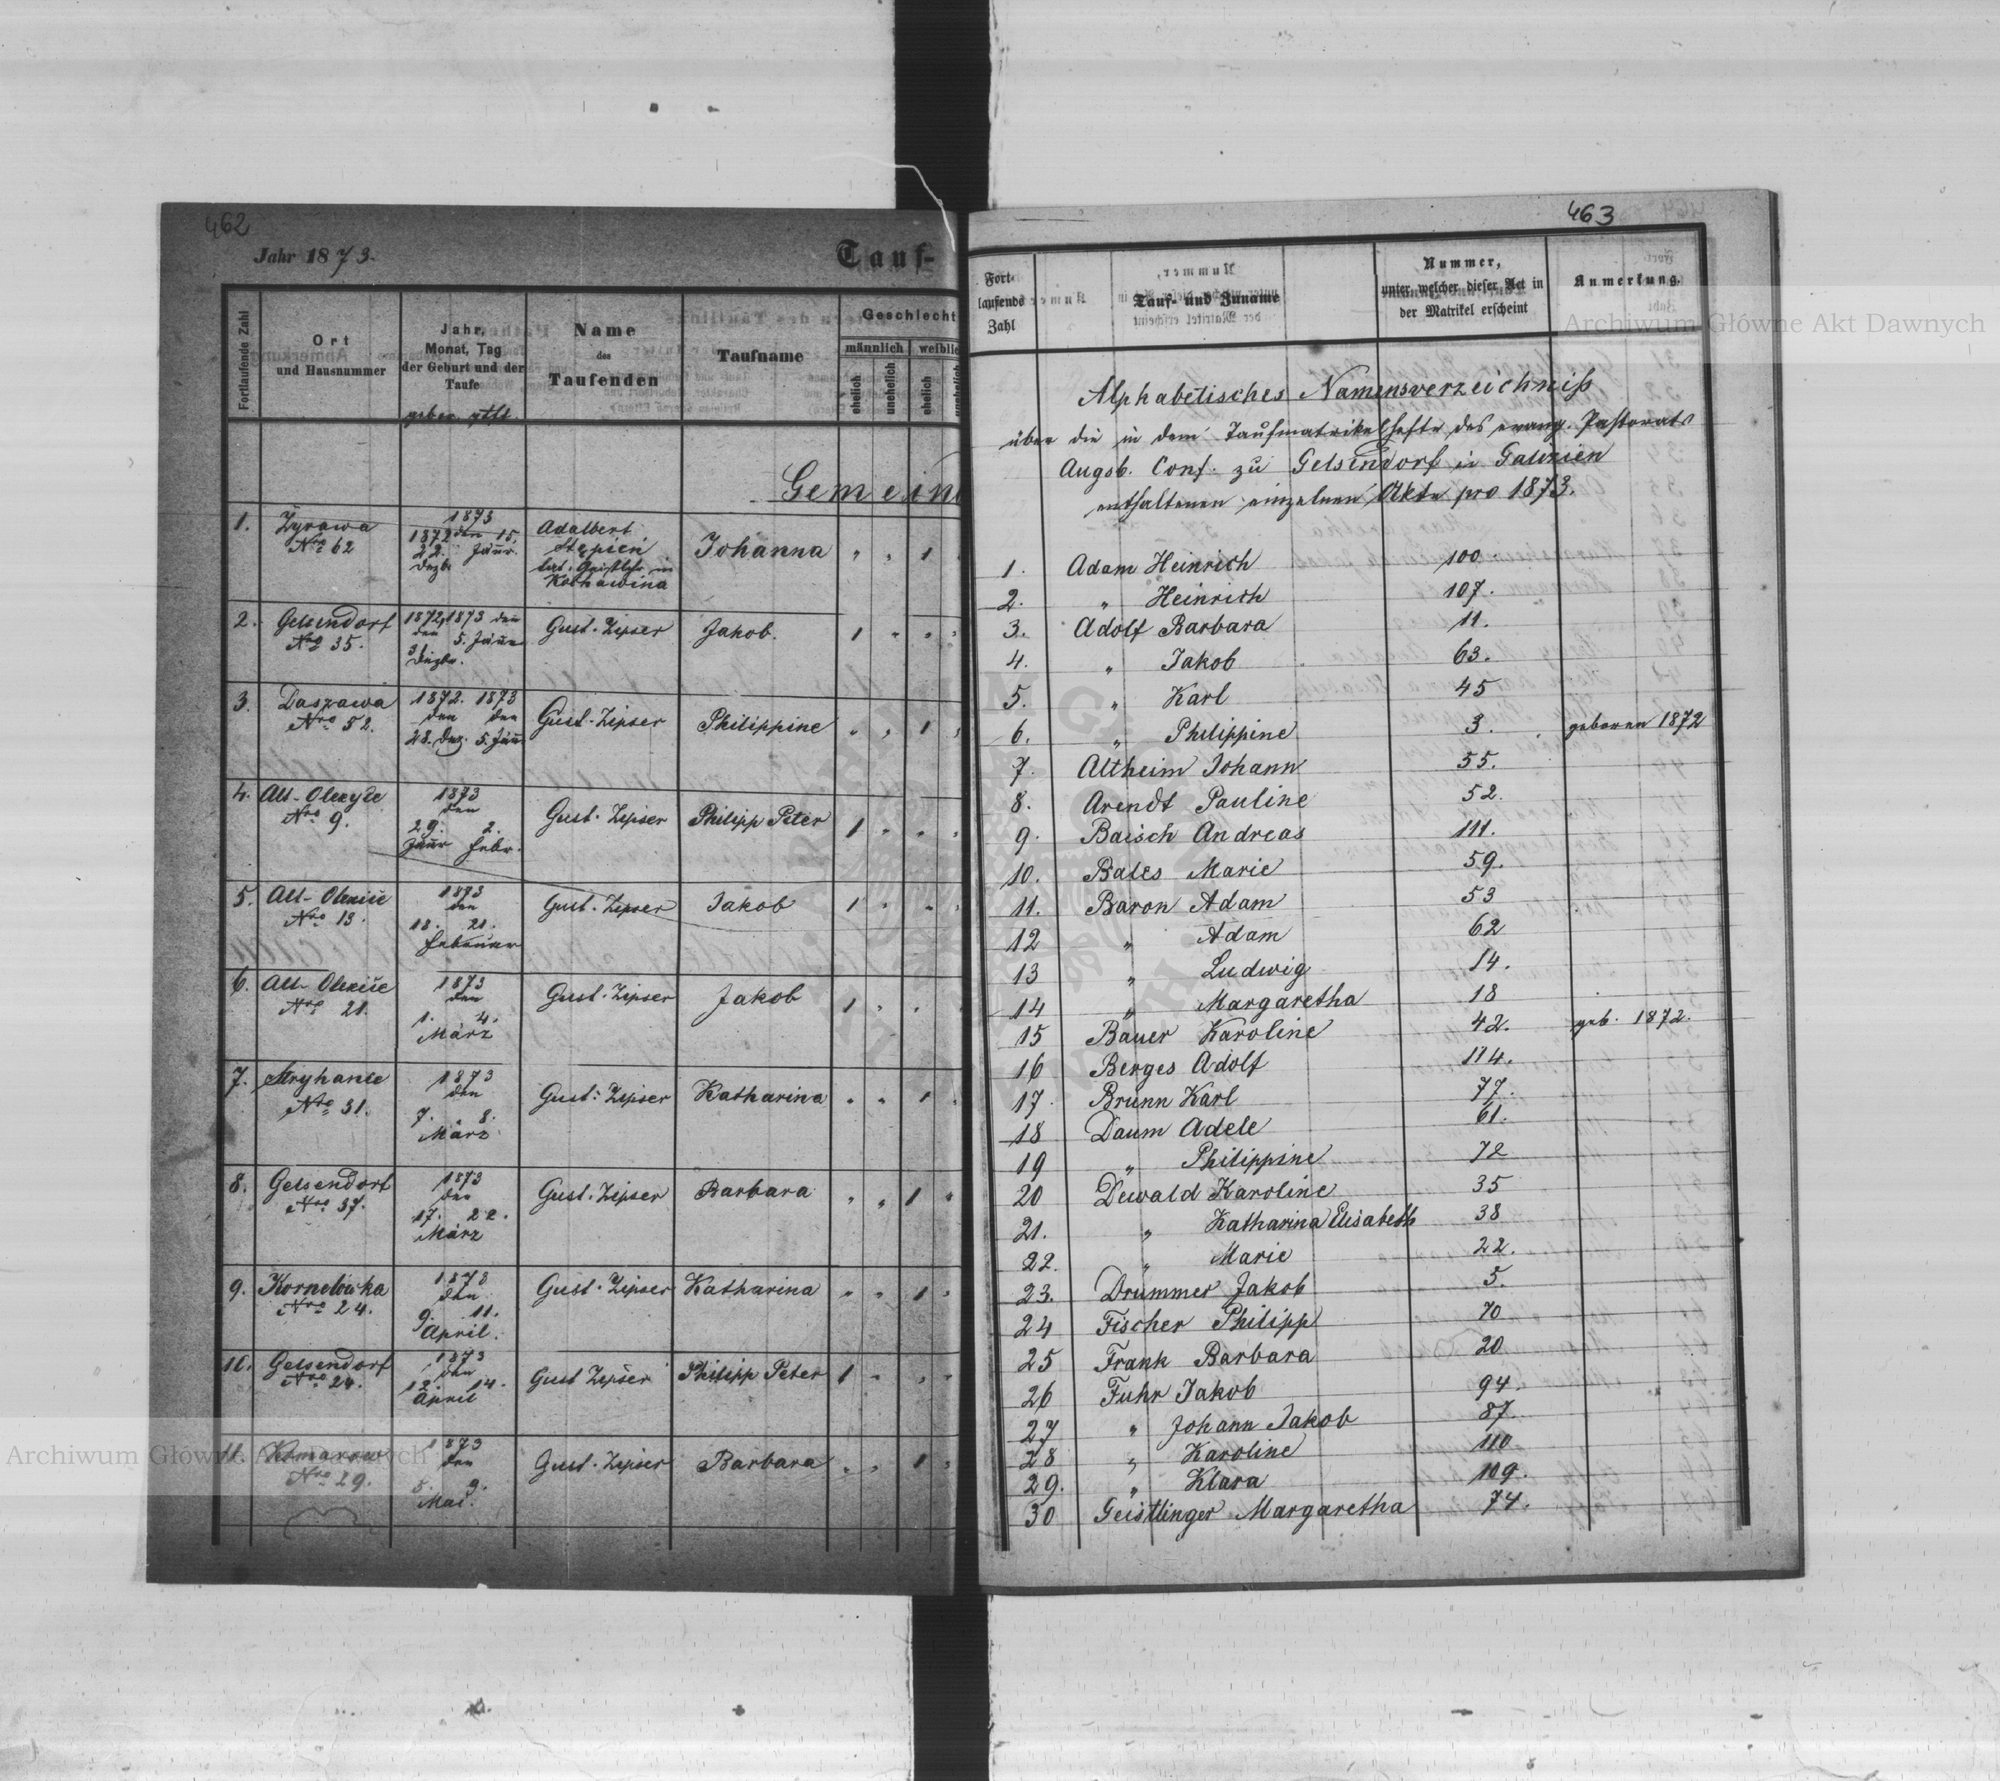 462
Jahr 1873.
Tauf-
Fortlaufende Zahl
Ort
und Hausnummer
Jahr,
Monat, Tag
der Geburt und der
Taufe
gebor. gtft.
Name
des
Taufenden
Taufname
Geschlecht
männlich
weiblic
ehelich
unehelich
ehelich
unehelich
Gemein
1. Zyrawa
Nro 62
1873
1872 den 15.
22. Jänr.
Dezbr
Adalbert
Stępień
lat. Geistlchr in
Kochawina
Johanna " " 1
2. Gelsendorf
Nro 35.
1872, 1873 den
den 5. Jänr
31
Dezbr.
Gust. Zipser
Jakob. 1 " " "
3. Daszawa
Nro 52.
1872. 1873
den den
28. Dez. 5. Jän.
Gust. Zipser
Philippine " " 1 "
4. Alt-Olexyce
Nro 9.
1873
den
29. 2.
Jänr Febr.
Gust. Zipser
Philipp Peter 1 " " "
5. Alt-Olexice
Nro 13.
1873
den
18. 21.
Februar
Gust. Zipser
Jakob 1 " " "
6. Alt-Olexice
Nro 21.
1873
den
1. 4.
März
Gust. Zipser
Jakob 1 " " "
7. Stryhance
Nro 31.
1873
den
7. 8.
März
Gust. Zipser
Katharina " " 1 "
8. Gelsendorf
Nro 37.
1873
den
17. 22.
März
Gust. Zipser
Barbara " " 1 "
9. Kornelówka
Nro 24.
1873
den
9. 11.
April.
Gust. Zipser
Katharina " " 1 "
10. Gelsendorf
Nro 24.
1873
den
12. 14.
April
Gust Zipser
Philipp Peter 1 " " "
11. Komarow
Nro 29.
1873
den
5. 9.
Mai.
Gust. Zipser
Barbara " " 1 "
463
Fort-
laufende
Zahl
Tauf- und Zuname
Nummer,
unter welcher dieser Act in
der Matrikel erscheint
Anmerkung.
Alphabetisches Namensverzeichniß
über die in dem Taufmatrikelhefte des evang. Pastorats
Augsb. Conf. zu Gelsendorf in Galizien
enthaltenen einzelnen Akte pro 1873.
1. Adam Heinrich 100.
2. " Heinrich 107.
3. Adolf Barbara 11.
4. " Jakob 63.
5. " Karl 45
6. " Philippine 3. geboren 1872
7. Altheim Johann 55.
8. Arendt Pauline 52.
9. Baisch Andreas 111.
10. Bales Marie 59.
11. Baron Adam 53
12 " Adam 62
13 " Ludwig 14.
14 " Margaretha 18
15 Bauer Karoline 42. geb. 1872.
16 Berges Adolf 114.
17 Brunn Karl 77.
18 Daum Adele 61.
19 " Philippine 72
20 Dewald Karoline 35
21. " Katharina Elisabeth 38
22. " Marie 22.
23. Drummer Jakob 5.
24 Fischer Philipp 70
25 Frank Barbara 20
26 Fuhr Jakob 94.
27 " Johann Jakob 87.
28 " Karoline 110
29. " Klara 109.
30 Geistlinger Margaretha 74.
Archiwum Główne Akt Dawnych
Archiwum Główne Akt Dawnych